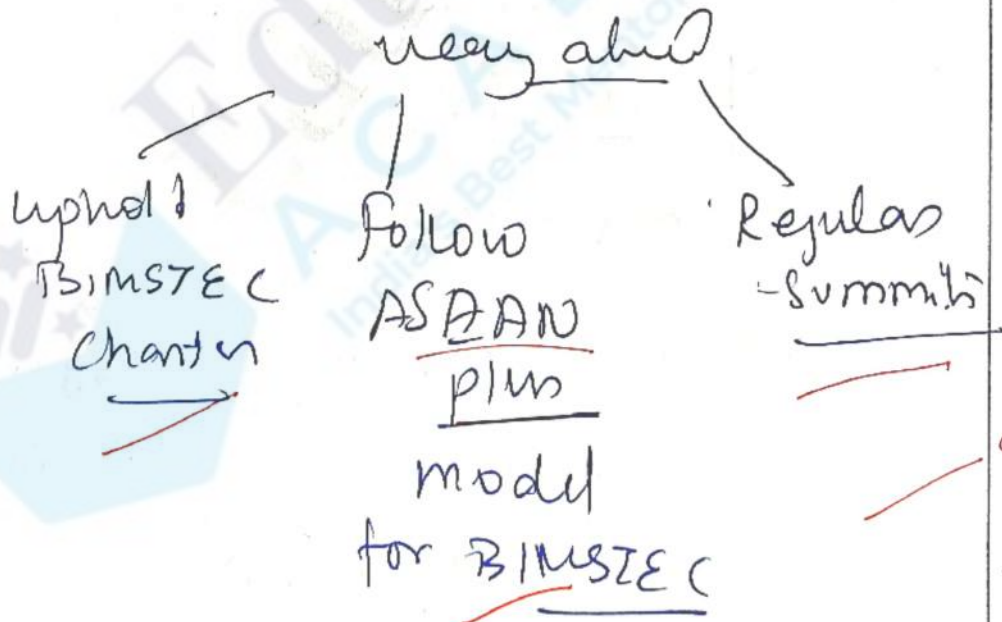 way ahead
uphold
BIMSTEC
Charter
Follow
ASEAN
plus
model
for BIMSTEC
Regular
-Summits
Ed
ACA
India's Best M